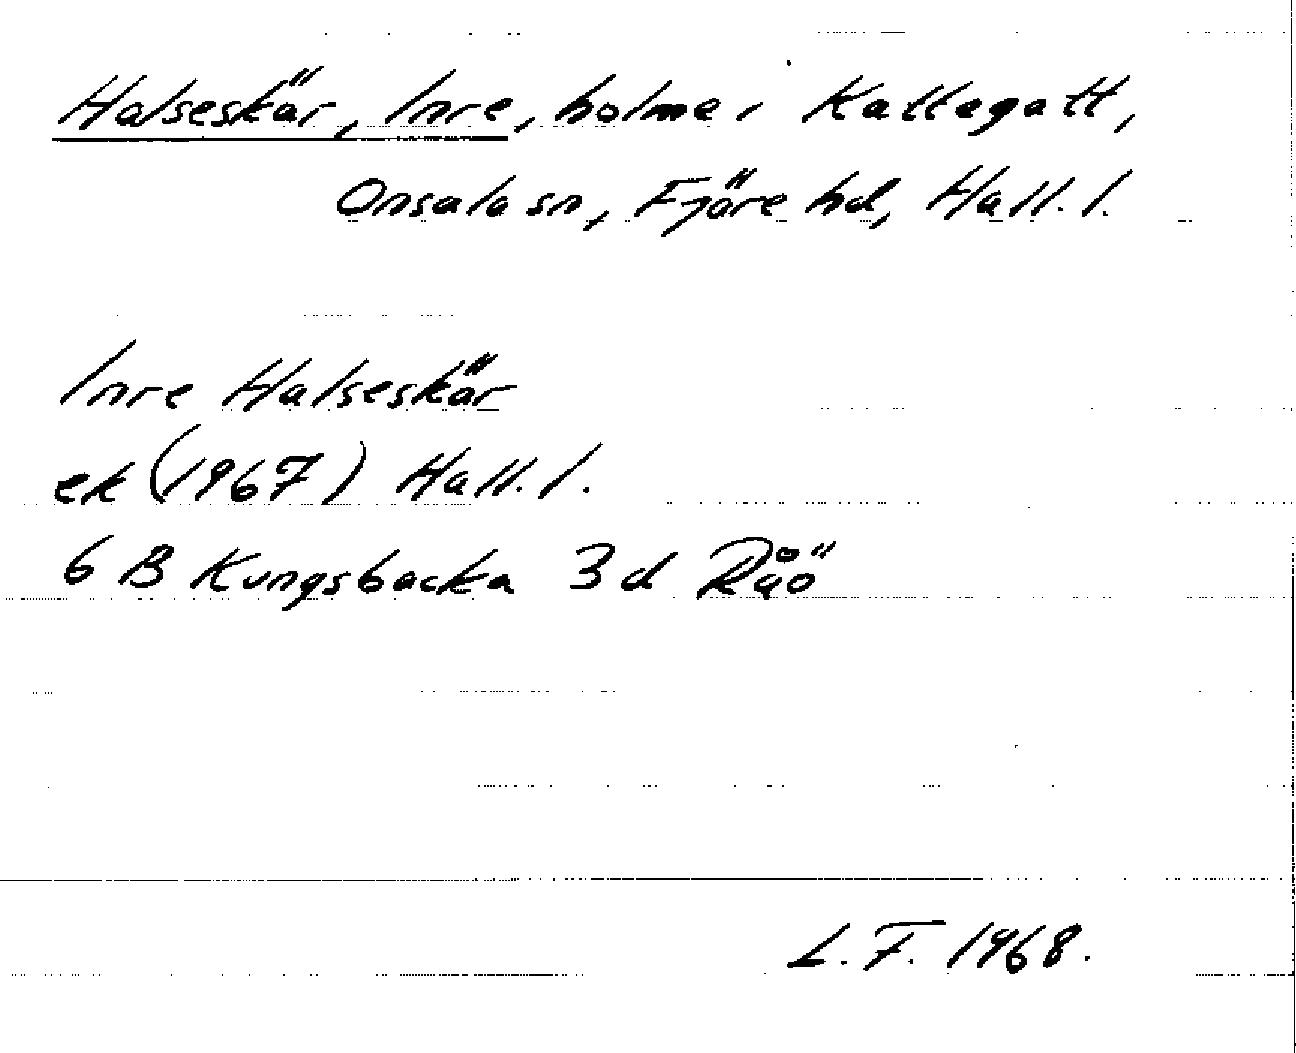 Halseskär, Inre, holme i Kattegatt,
Onsala sn, Fjäre hd, Hall. l.
Inre Halseskär
ek (1967) Hall. l.
6 B Kungsbacka 3 d Råö
L. F. 1968.